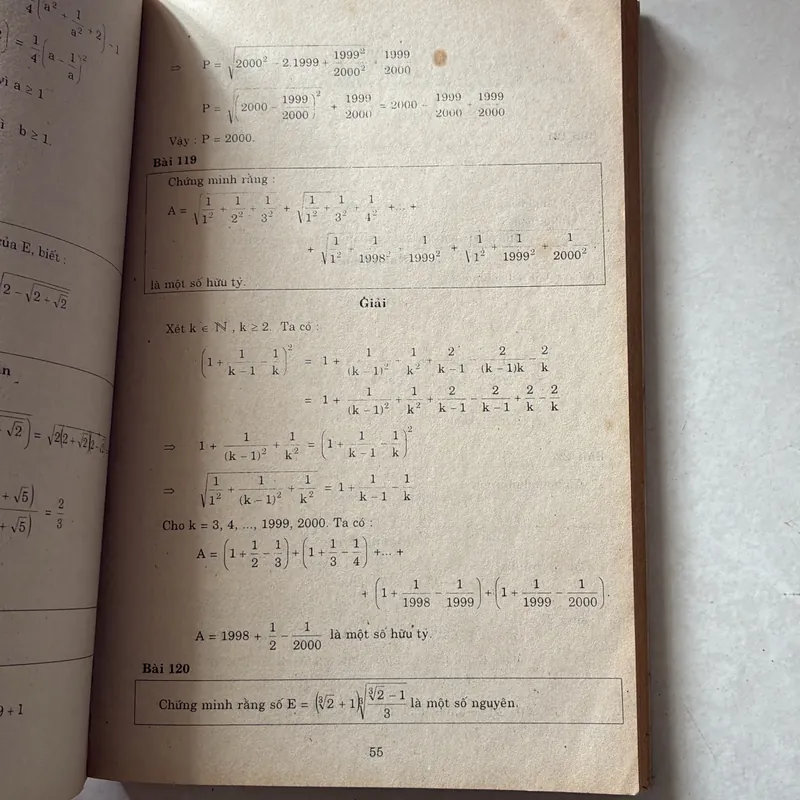 1/4(a² + 1/a² + 2) - 1
= 1/4(a - 1/a)²
vì a ≥ 1
b ≥ 1.
của E, biết :
√2 - √(2 + √2)
= 2/3
9 + 1
⇒ P = √(2000² - 2.1999 + 1999²/2000²) + 1999/2000
P = √((2000 - 1999/2000)²) + 1999/2000 = 2000 - 1999/2000 + 1999/2000
Vậy : P = 2000.
Bài 119
Chứng minh rằng :
A = √(1/1² + 1/2² + 1/3²) + √(1/1² + 1/3² + 1/4²) +...+
+ √(1/1² + 1/1998² + 1/1999²) + √(1/1² + 1/1999² + 1/2000²).
là một số hữu tỷ.
Giải
Xét k ∈ ℕ , k ≥ 2. Ta có :
(1 + 1/(k-1) - 1/k)² = 1 + 1/(k-1)² + 1/k² + 2/(k-1) - 2/((k-1)k) - 2/k
= 1 + 1/(k-1)² + 1/k² + 2/(k-1) - 2/(k-1) + 2/k - 2/k
⇒ 1 + 1/(k-1)² + 1/k² = (1 + 1/(k-1) - 1/k)²
⇒ √(1/1² + 1/(k-1)² + 1/k²) = 1 + 1/(k-1) - 1/k
Cho k = 3, 4, ..., 1999, 2000. Ta có :
A = (1 + 1/2 - 1/3) + (1 + 1/3 - 1/4) +...+
+ (1 + 1/1998 - 1/1999) + (1 + 1/1999 - 1/2000).
A = 1998 + 1/2 - 1/2000 là một số hữu tỷ.
Bài 120
Chứng minh rằng số E = (∛2 + 1)∛((∛2 - 1)/3) là một số nguyên.
55